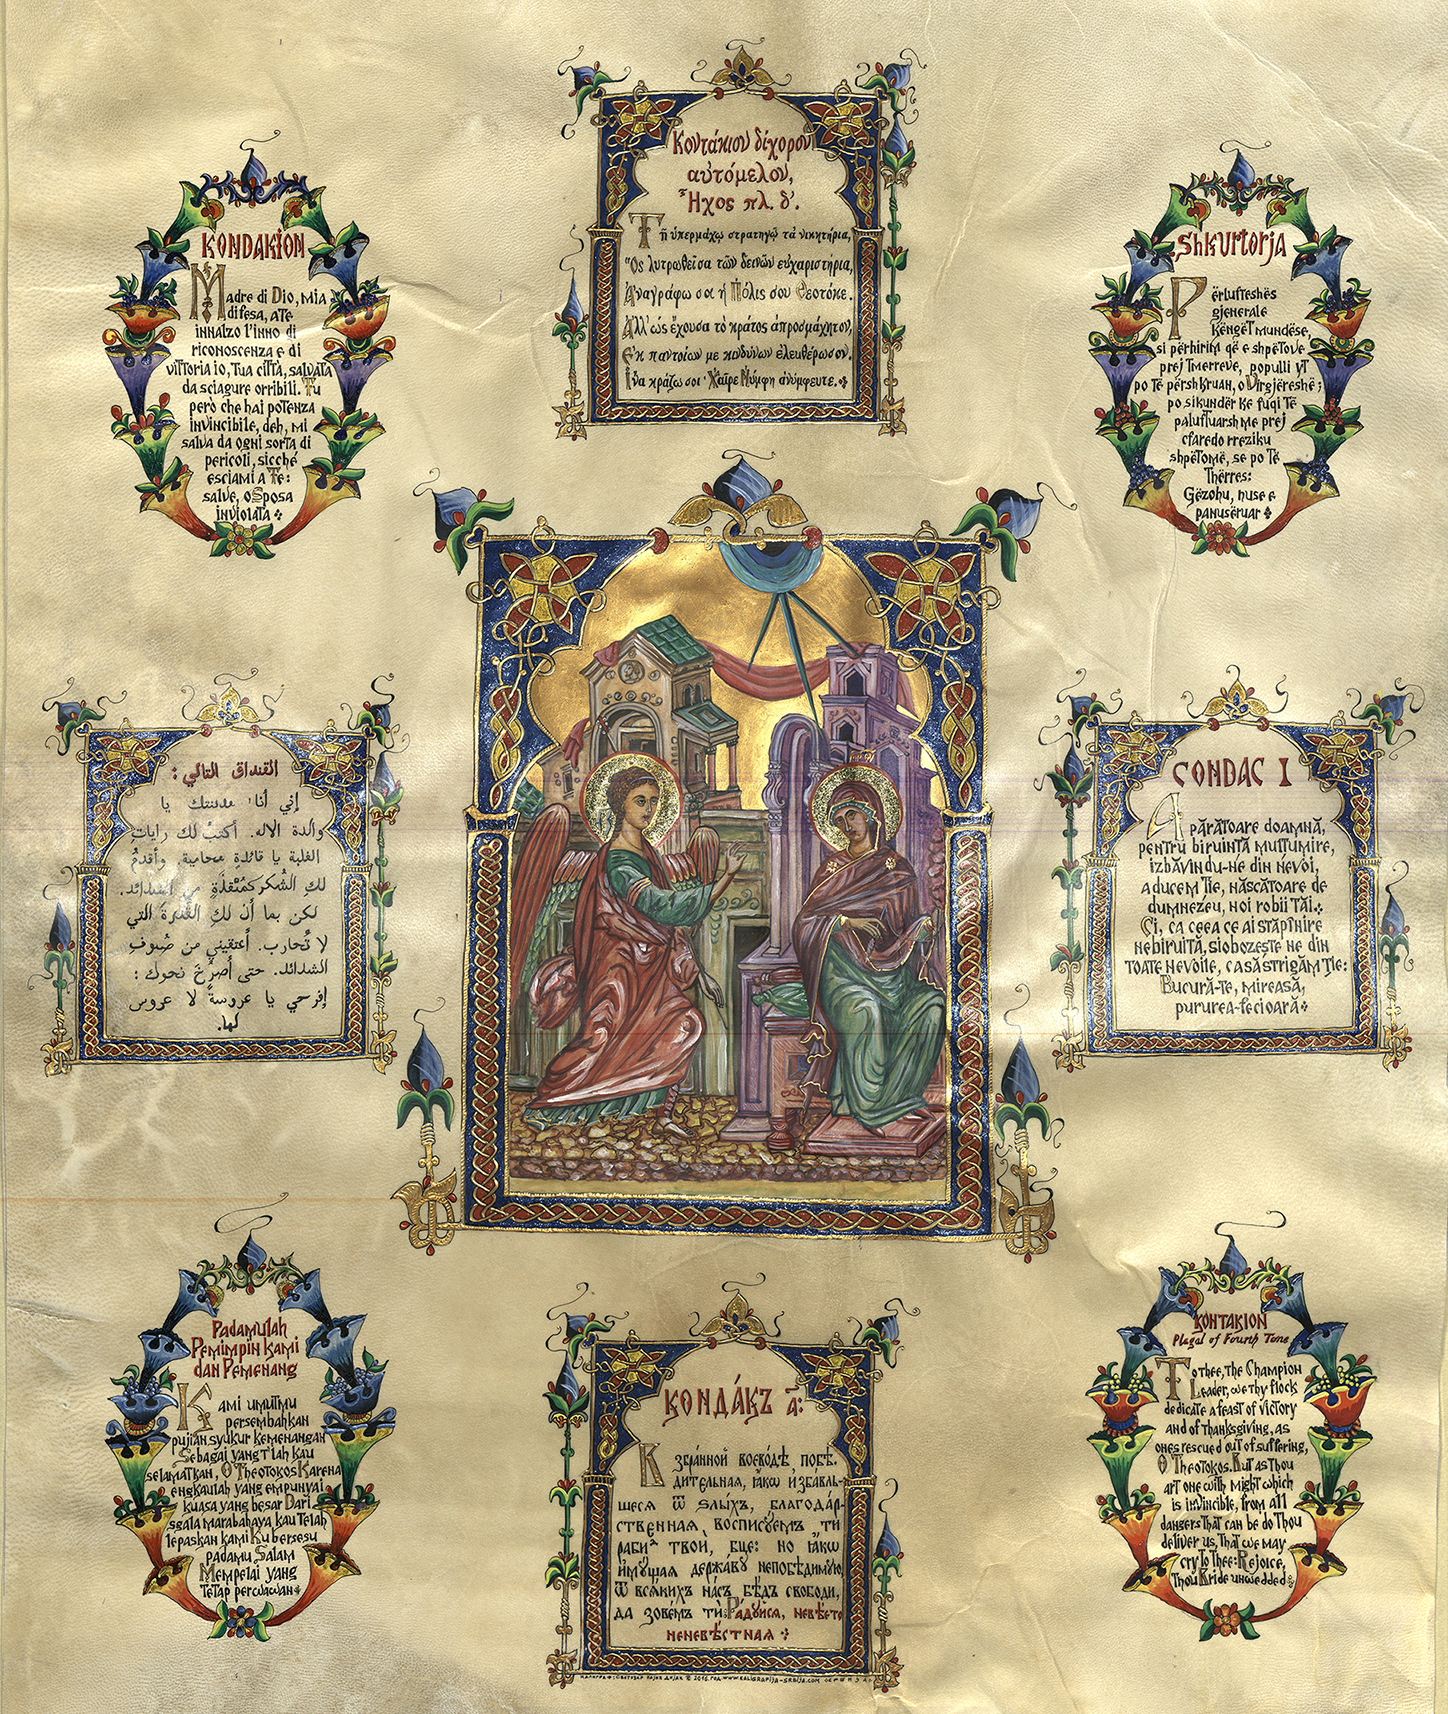 Κοντάκιον δίχορον
αὐτόμελον,
Ἦχος πλ. δ'.
Τῇ ὑπερμάχῳ στρατηγῷ τὰ νικητήρια,
Ὡς λυτρωθεῖσα τῶν δεινῶν εὐχαριστήρια,
Ἀναγράφω σοι ἡ Πόλις σου Θεοτόκε.
Ἀλλ' ὡς ἔχουσα τὸ κράτος ἀπροσμάχητον,
Ἐκ παντοίων με κινδύνων ἐλευθέρωσον.
Ἵνα κράζω σοι· Χαῖρε Νύμφη ἀνύμφευτε.
KONDAKION
Madre di Dio, mia
difesa, a Te
innalzo l'inno di
riconoscenza e di
vittoria io, Tua città, salvata
da sciagure orribili. Tu
però che hai potenza
invincibile, deh, mi
salva da ogni sorta di
pericoli, sicché
esclami a Te:
salve, o Sposa
inviolata
Shkurtorja
Përlufteshës
gjenerale
këngët mundëse,
si përhirim që e shpëtove
prej tmerreve, populli yt
po të përshkruan, o Virgjëreshë;
po sikundër ke fuqi të
paluftuarshme prej
cfaredo rreziku
shpëtomë, se po të
thërres:
Gëzohu, nuse e
panusëruar
القنداق التالي :
إني أنا مدينتك يا
والدة الاله. أكتبُ لك رايات
الغلبة يا قائدة محامية. وأقدمُ
لكِ الشُكر كمُنْقذَةٍ من الشدائد.
لكن بما أن لكِ القدرة التي
لا تُحارب. أعتقيني من صُنوفِ
الشدائد. حتى أصرُخ نحوك :
إفرحي يا عروسةً لا عروس
لها.
CONDAC I
Apărătoare doamnă,
pentru biruință mulțumire,
izbăvindu-ne din nevoi,
aducem ție, născătoare de
dumnezeu, noi robii tăi.
Ci, ca ceea ce ai stăpînire
nebiruită, slobozește ne din
toate nevoile, ca să strigăm ție:
Bucură-te, mireasă,
pururea-fecioară
Padamulah
Pemimpin kami
dan Pemenang
Kami umutmu
persembahkan
pujian syukur kemenangan
Sebagai yang t'lah kau
selamatkan, O Theotokos Karena
engkaulah yang empunyai
kuasa yang besar Dari
sgala marabahaya kau telah
lepaskan kami Ku berseu
padamu Salam
Mempelai yang
tetap perawan
КОНДА́КЪ а҃:
Взбра́нной воево́дѣ побѣ-
дительная, ꙗ҆́кѡ и҆збавль-
шеся ѿ ѕлы́хъ, благода́р-
ственная восписꙋ́емъ ти
раби твои́, бце: но ꙗ҆́кѡ
и҆мꙋ́щая держа́вꙋ непобѣди́мꙋю,
ѿ вся́кихъ на́съ бѣ́дъ свободи́,
да зове́мъ ти: Ра́дꙋйся, невѣ́сто
неневѣ́стная
KONTAKION
Plagal of Fourth Tone
To thee, the Champion
Leader, we thy flock
dedicate a feast of victory
and of thanksgiving, as
ones rescued out of suffering,
O Theotokos. But as thou
art one with might which
is invincible, from all
dangers that can be do Thou
deliver us, That we may
cry to Thee: Rejoice,
Thou Bride unwedded
© 2016. год. www.kaligrafija-srbija.com